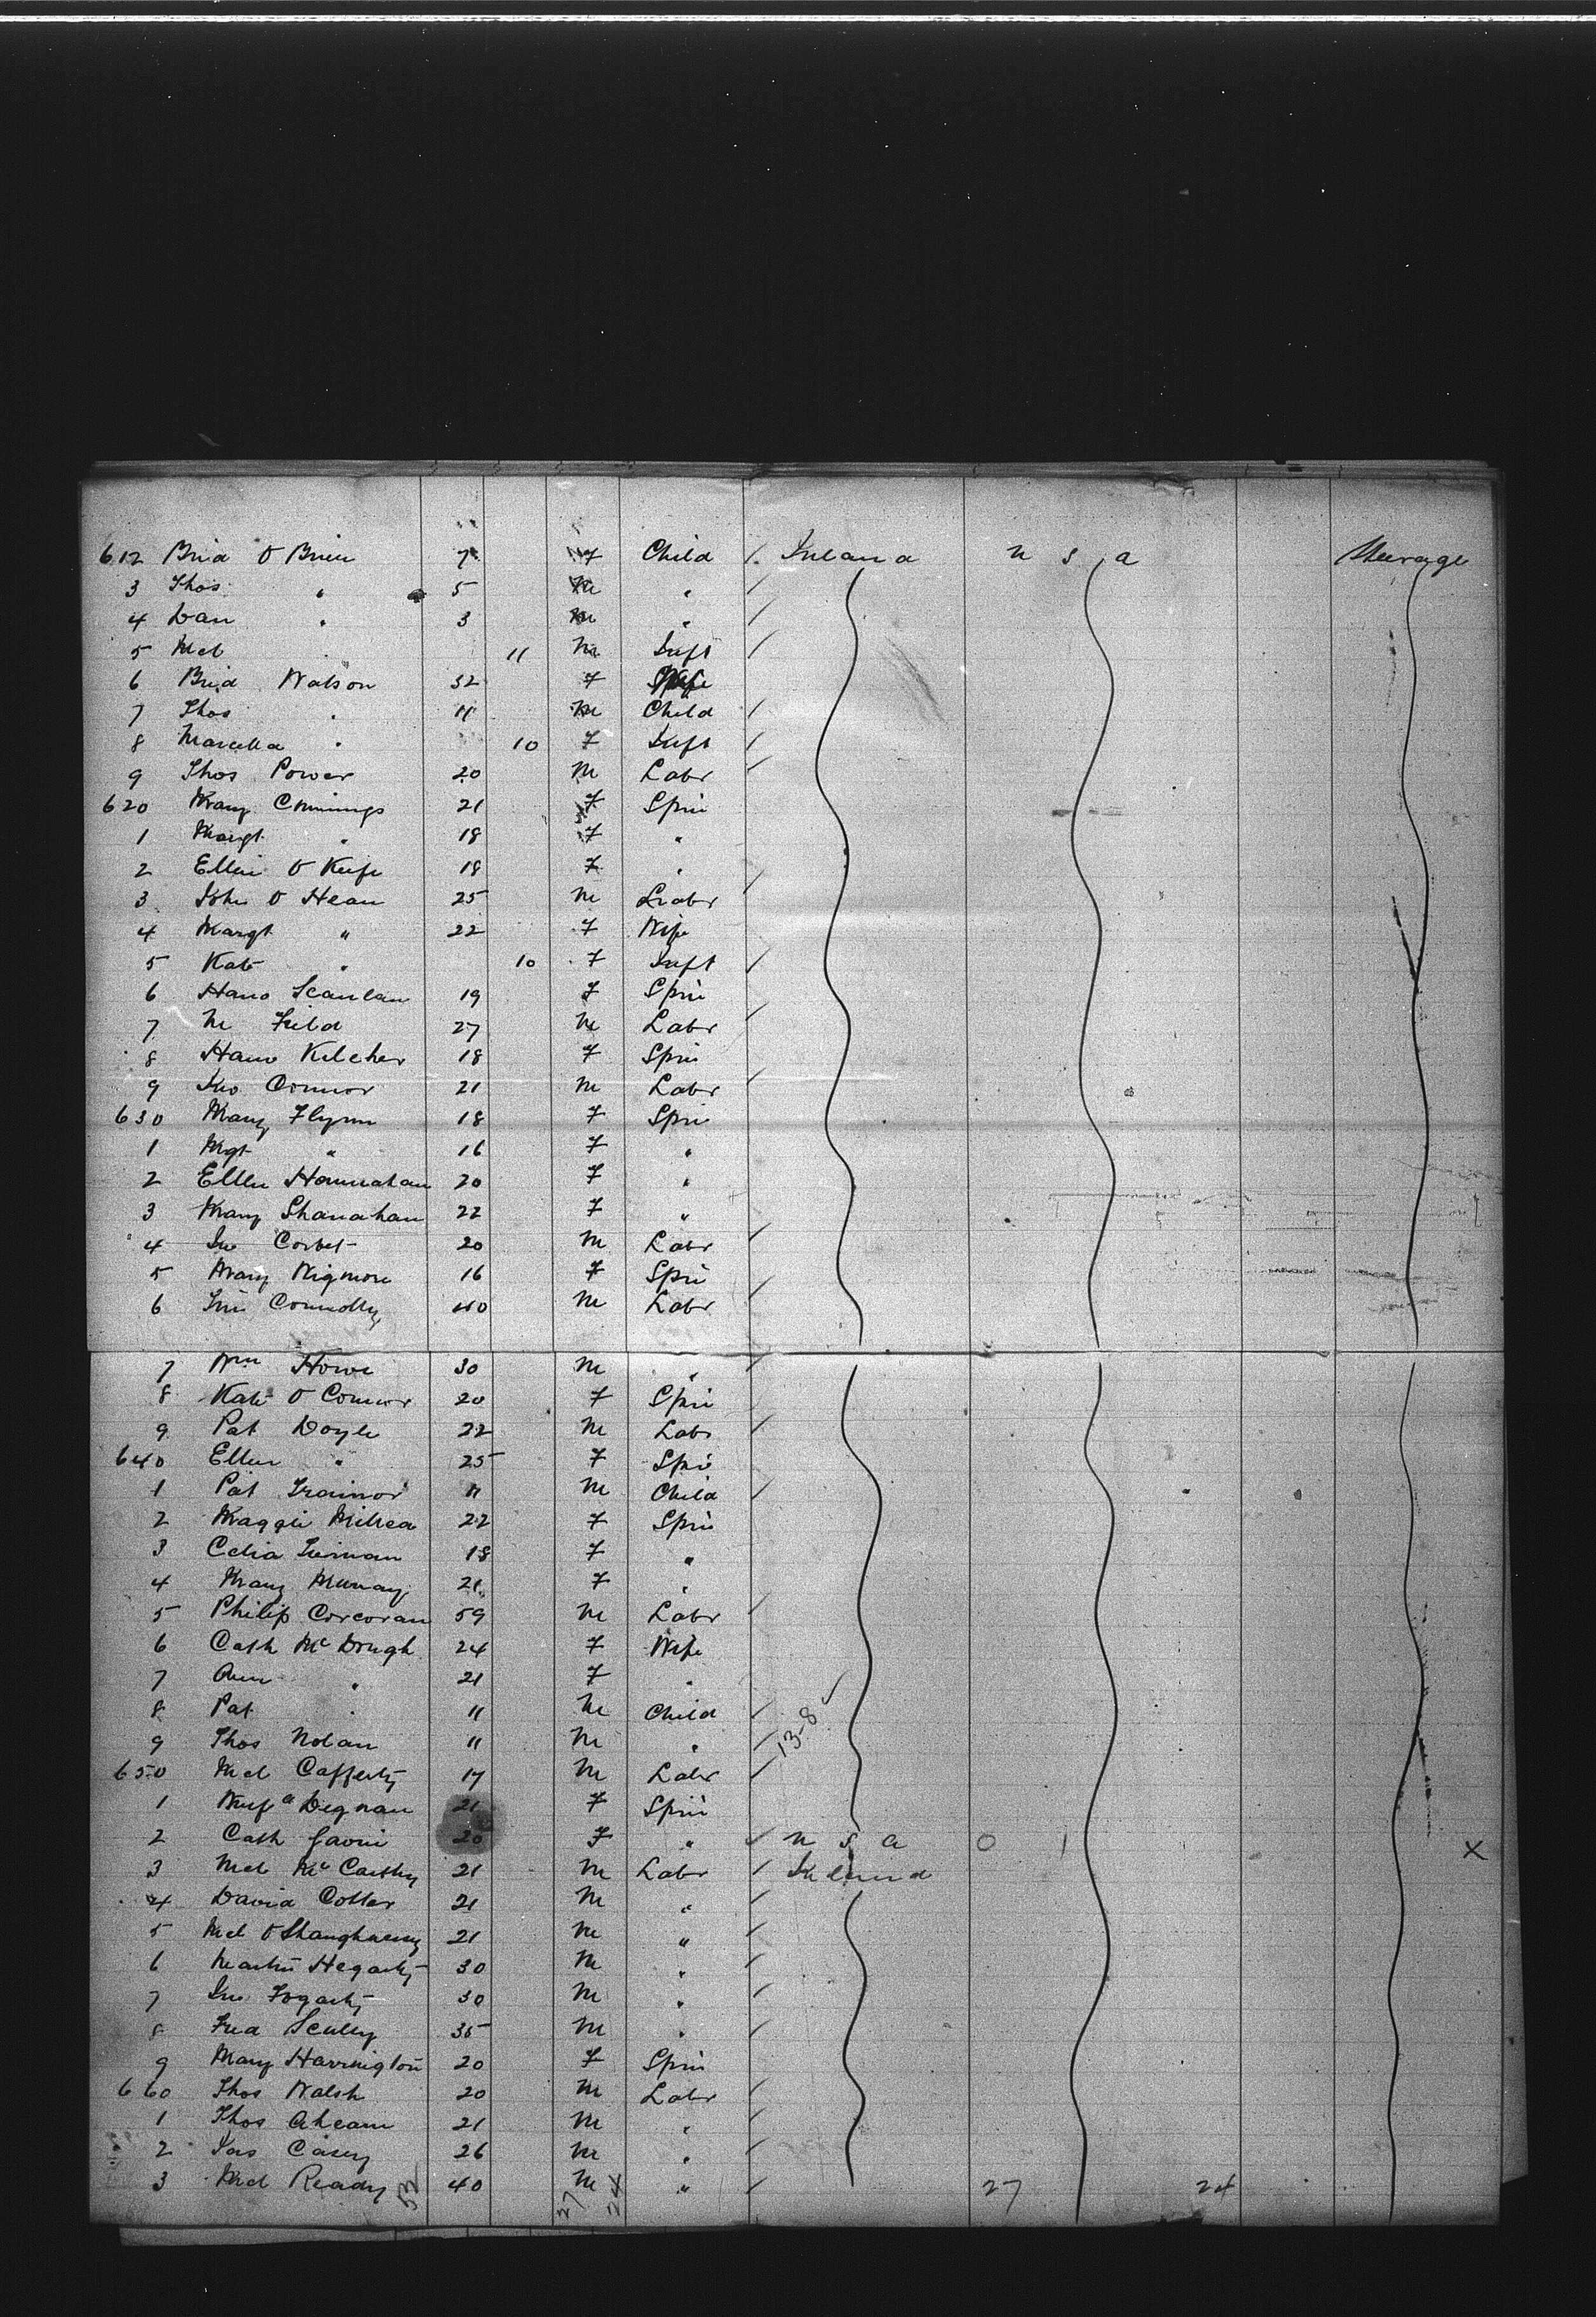 612 Brid O Brien 7 F Child / Ireland U S A Steerage
3 Thos " 5 M " /
4 Dan " 3 M " /
5 Mcl 11 M Inft /
6 Brid Watson 32 F Wife
7 Thos " 11 M Child /
8 Marcella " 10 F Inft /
9 Thos Power 20 M Labr /
620 Mary Cmmings 21 F Spin
1 Margt " 18 F "
2 Ellen O Keefe 18 F "
3 John O Hean 25 M Labr /
4 Margt " 22 F Wife
5 Kate " 10 F Inft /
6 Hano Scanlan 19 F Spin
7 M Field 27 M Labr /
8 Hano Kelcher 18 F Spin
9 Jno Connor 21 M Labr /
630 Mary Flynn 18 F Spin
1 Mgt " 16 F "
2 Ellen Hounahan 20 F "
3 Mary Shanahan 22 F "
4 Jno Corbet 20 M Labr /
5 Mary Wigmore 16 F Spin
6 Jno Connolly 40 M Labr /
7 Wm Howe 30 M " /
8 Kate O Connor 20 F Spin
9 Pat Doyle 22 M Labr /
640 Ellen " 25 F Spin
1 Pat Trainor 11 M Child /
2 Maggie 22 F Spin
3 Celia 18 F "
4 Mary Murray 21 F "
5 Philip Corcoran 59 M Labr /
6 Cath Mc Dongh 24 F Wife
7 Ann " 21 F "
8 Pat " 11 M Child / 13-8 ✓
9 Thos Nolan 11 M " /
650 Mcl Cafferty 17 M Labr /
1 Dignan 21 F Spin
2 Cath 20 F " ✓ U S A 0 1 X
3 Mcl Mc Carthy 21 M Labr / Ireland
4 David Cotter 21 M " /
5 Mcl O Shaughnessy 21 M " /
6 Martin Hegarty 30 M " /
7 Jno Fogarty 30 M " /
8 Fred Scully 35 M " /
9 Mary Harrington 20 F Spin
660 Thos Walsh 20 M Labr /
1 Thos Ahearn 21 M " /
2 Jas Casey 26 M " /
3 Mcl Ready 40 M " / 27 24
27 24